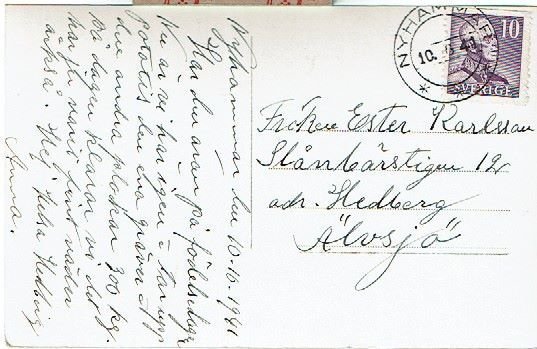 Nyhammar den 10.10. 1941
Har den äran på födelsedagen
Nu är vi här igen å tar upp
potatis den ena gräver å
den andra plockar 300 kg.
på dagen klarar vi det
har ju varit fint väder
också. Hej hälsa Hedberg
Anna.
NYHAMMAR
10.
41
10
SVERIGE
Fröken Ester Karlsson
Slånbärstigen 12
adr. Hedberg
Älvsjö